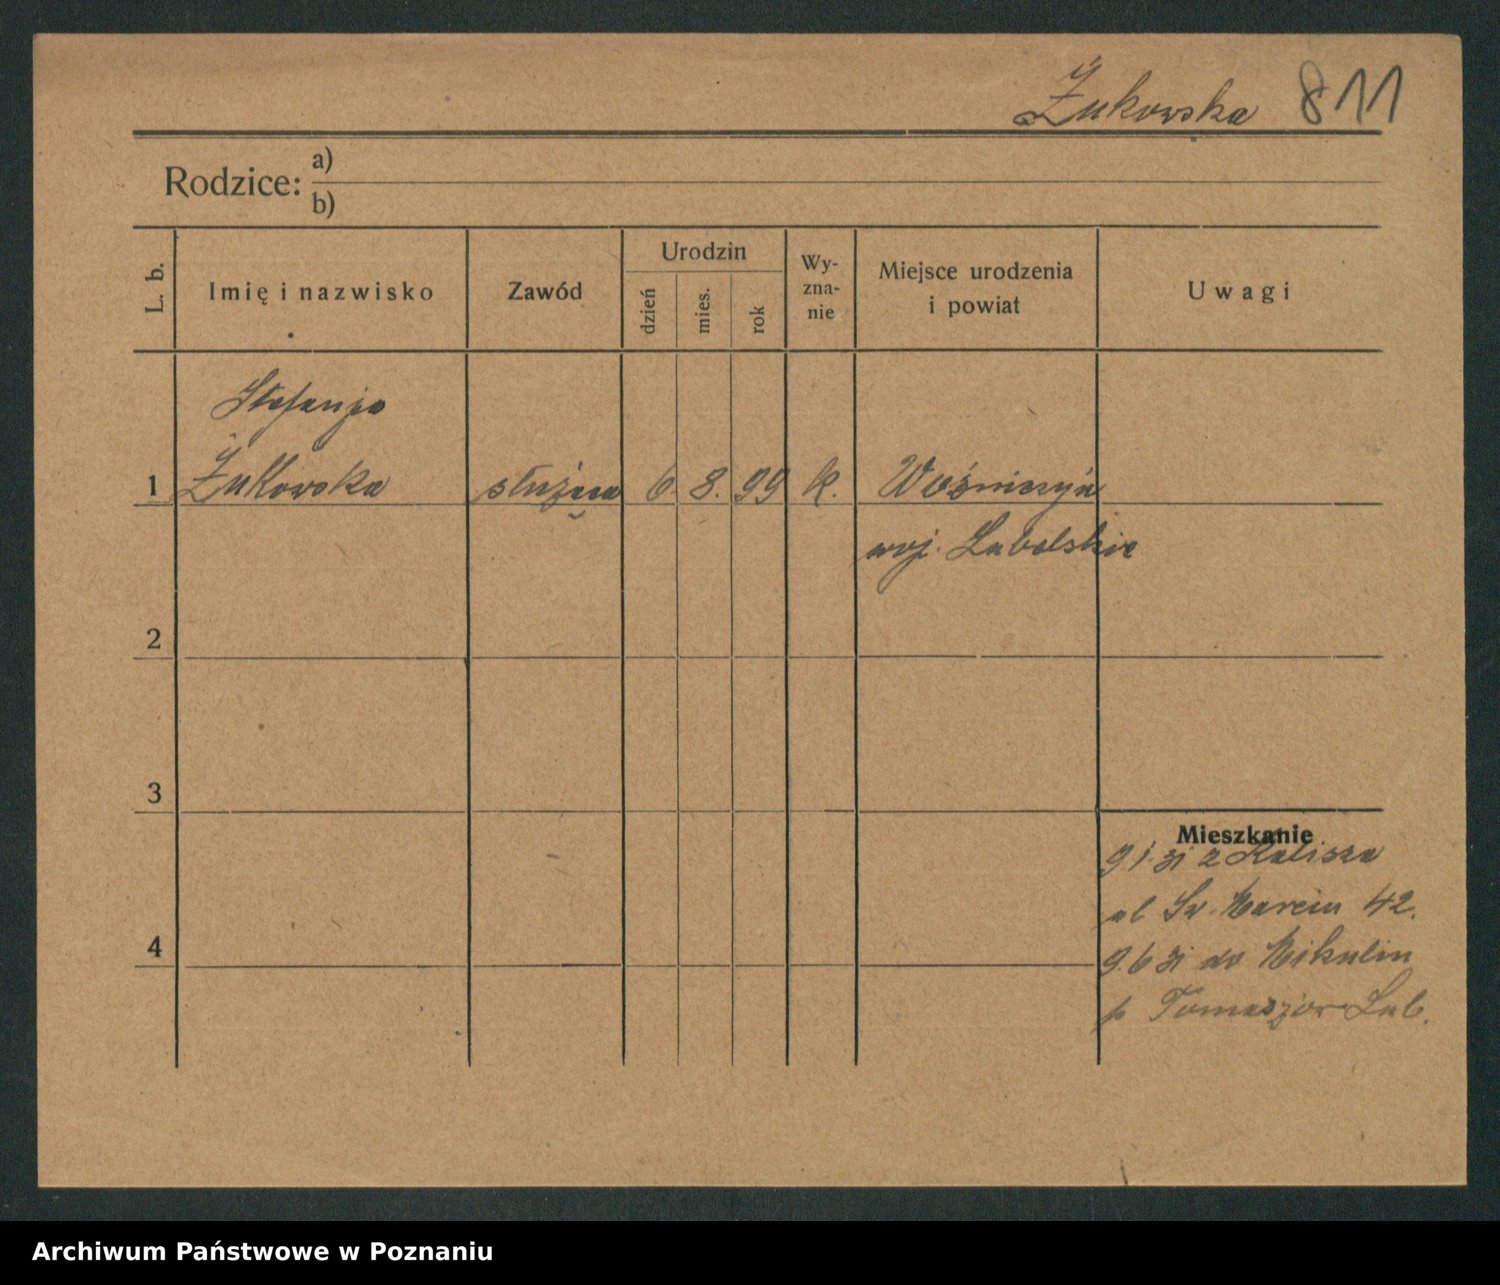 Żukowska 811
Rodzice: a)
b)
L. b.
Imię i nazwisko
Zawód
Urodzin
dzień
mies.
rok
Wy-
zna-
nie
Miejsce urodzenia
i powiat
Uwagi
Stefanja
1 Żukowska służąca 6. 8. 99 k. Woźniczyn
woj. Lubelskie
2
3
Mieszkanie
9 1 31 z Kalisza
ul Św. Marcin 42.
4
9.6 31 do Mikulin
p Tomaszow Lub.
Archiwum Państwowe w Poznaniu